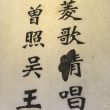 菱歌清唱
曾照吴王